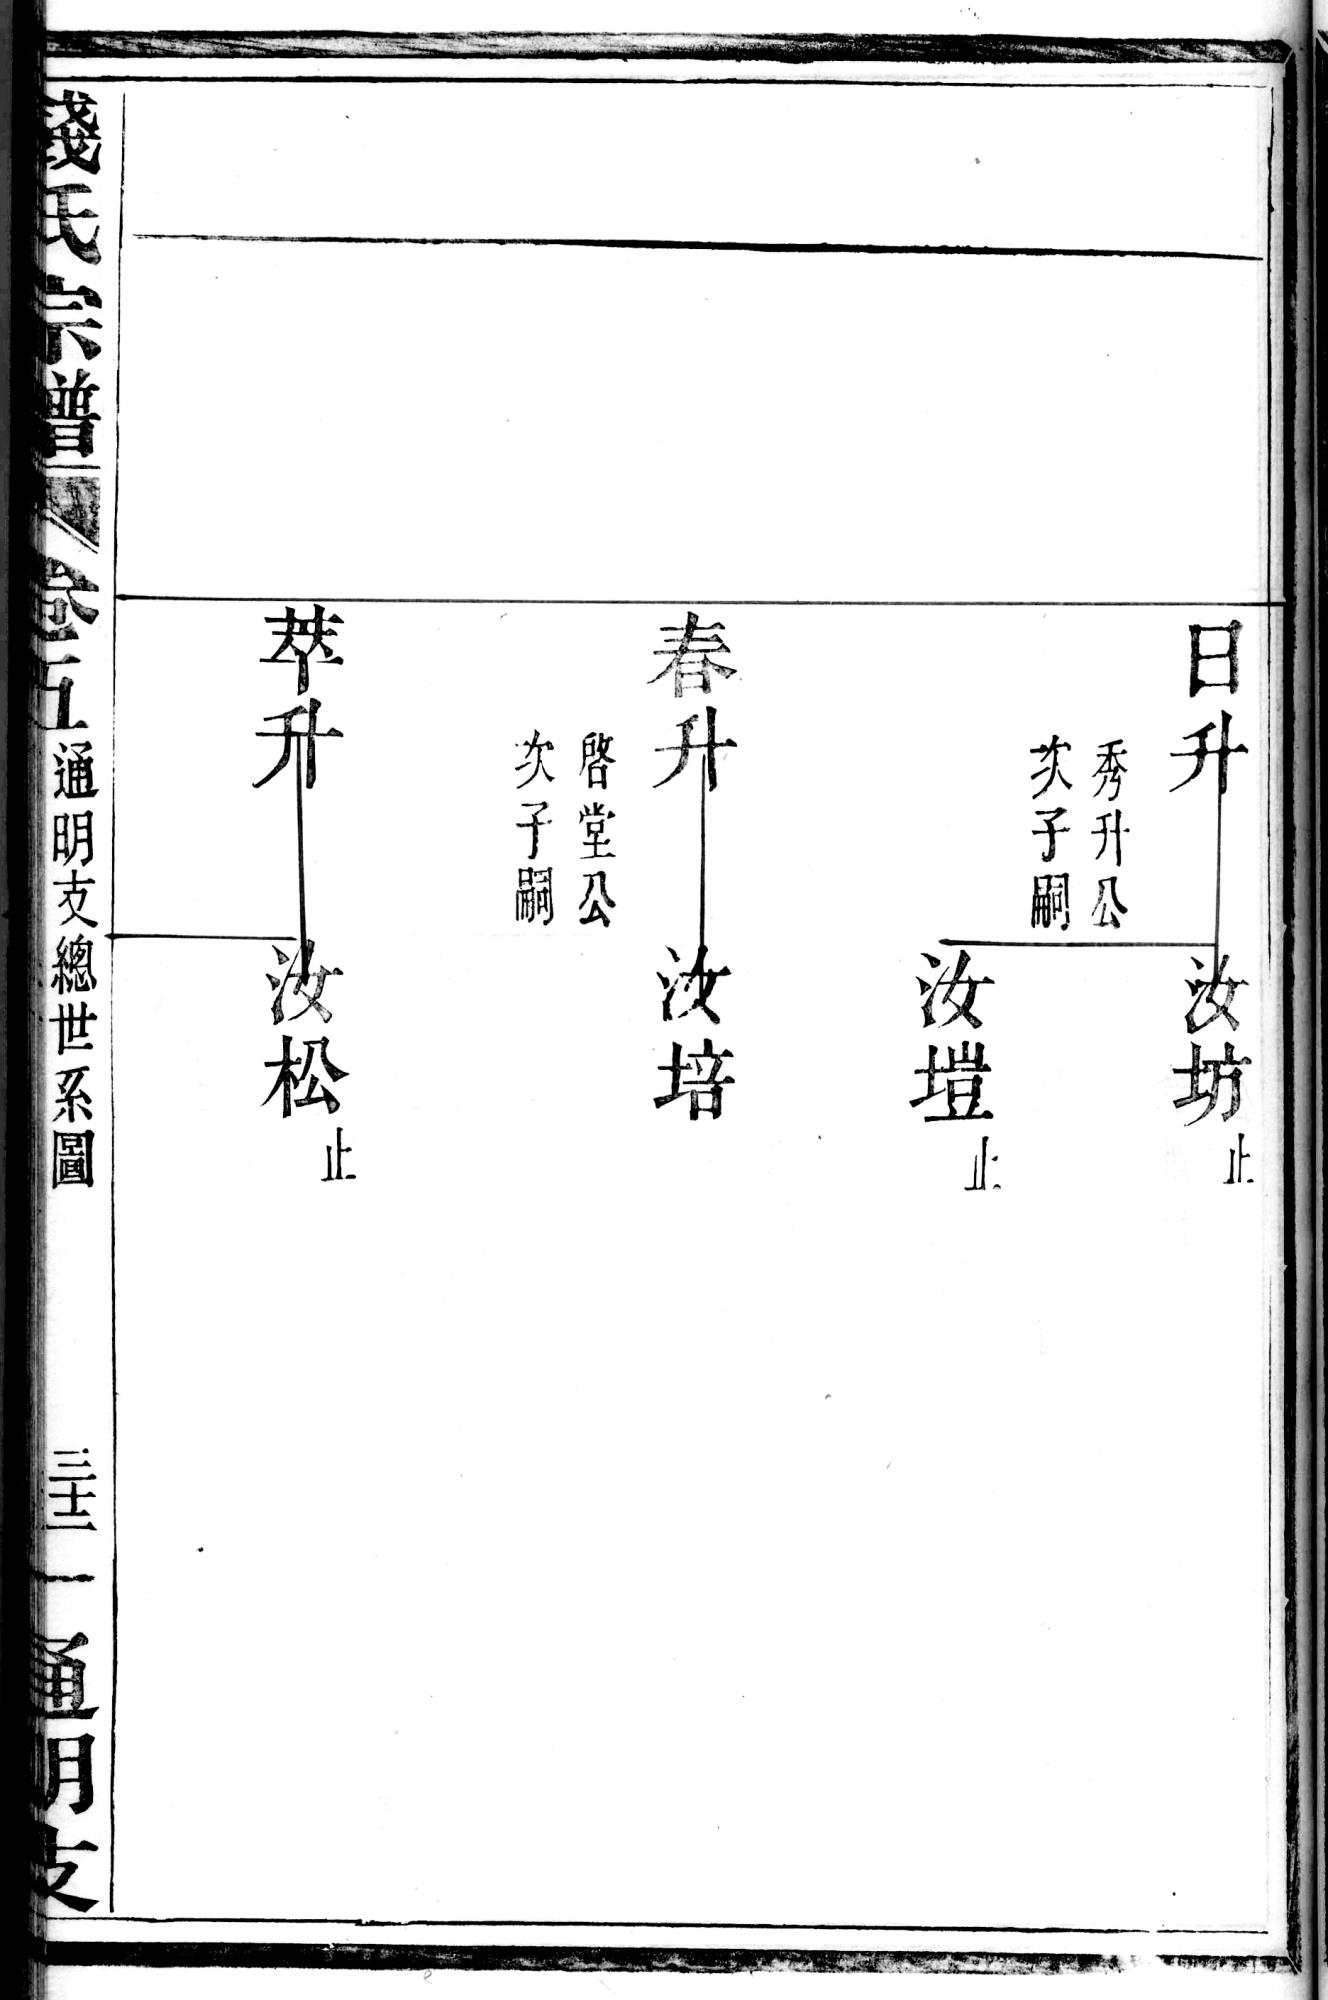 日升
秀升公
次子嗣
汝坊
止
汝塏
止
春升
啓堂公
次子嗣
汝培
萃升
汝松
止
錢氏宗譜
卷五
通明支總世系圖
三十二
一
通明支